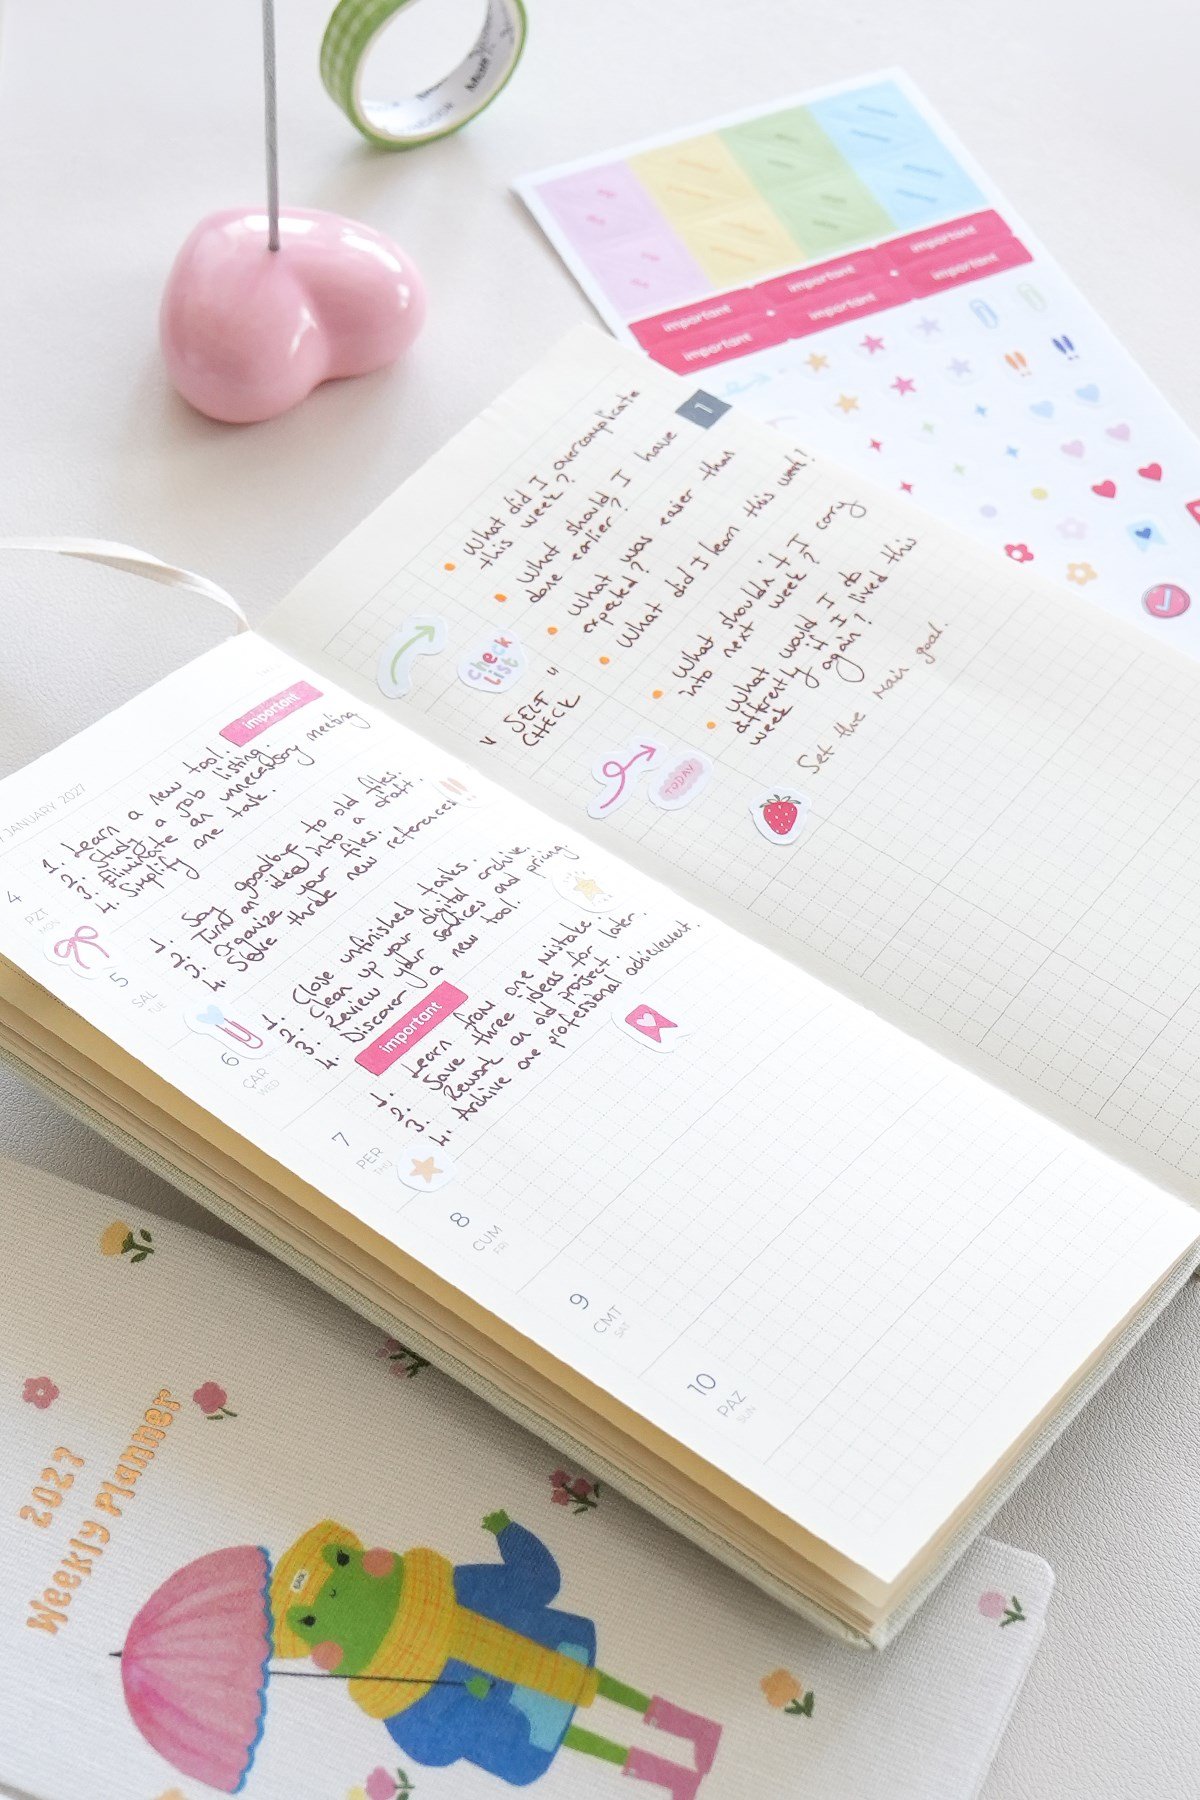 important
important
important
important
important
important
1
What did I overcomplicate
this week?
What should I have
done earlier?
What was easier than
expected?
What did I learn this week?
What shouldn't I carry
into next week?
What would I do
differently if I lived this
week again?
Set the main goal.
check
list
"SELF
CHECK"
TODAY
JANUARY 2027
important
4
PZT
MON
1. Learn a new tool.
2. Study a job listing.
3. Eliminate an unnecessary meeting
4. Simplify one task.
5
SAL
TUE
1. Say goodbye to old files.
2. Turn an idea into a draft.
3. Organize your files.
4. Save three new references.
6
ÇAR
WED
1. Close unfinished tasks.
2. Clean up your digital archive.
3. Review your services and pricing.
4. Discover a new tool.
important
7
PER
THU
1. Learn from one mistake.
2. Save three ideas for later.
3. Rework an old project.
4. Archive one professional achievement.
8
CUM
FRI
9
CMT
SAT
10
PAZ
SUN
2027
Weekly Planner